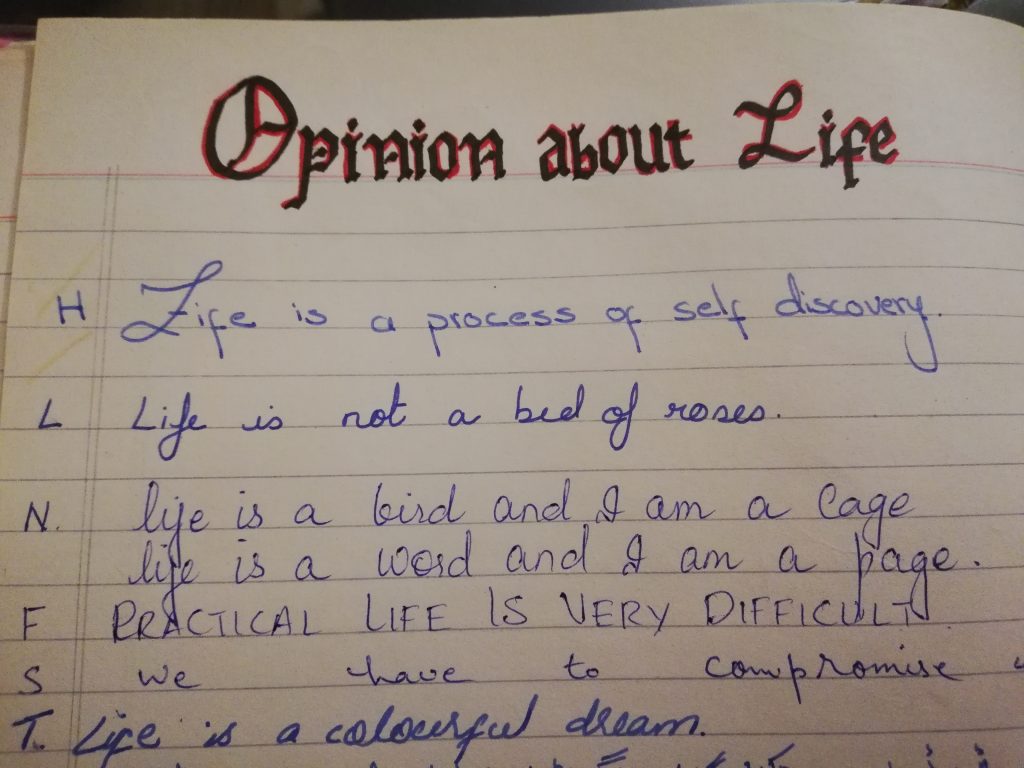 Opinion about Life
H Life is a process of self discovery.
L Life is not a bed of roses.
N. life is a bird and I am a Cage
life is a word and I am a page.
F PRACTICAL LIFE IS VERY DIFFICULT
S we have to compromise
T. Life is a colourful dream.